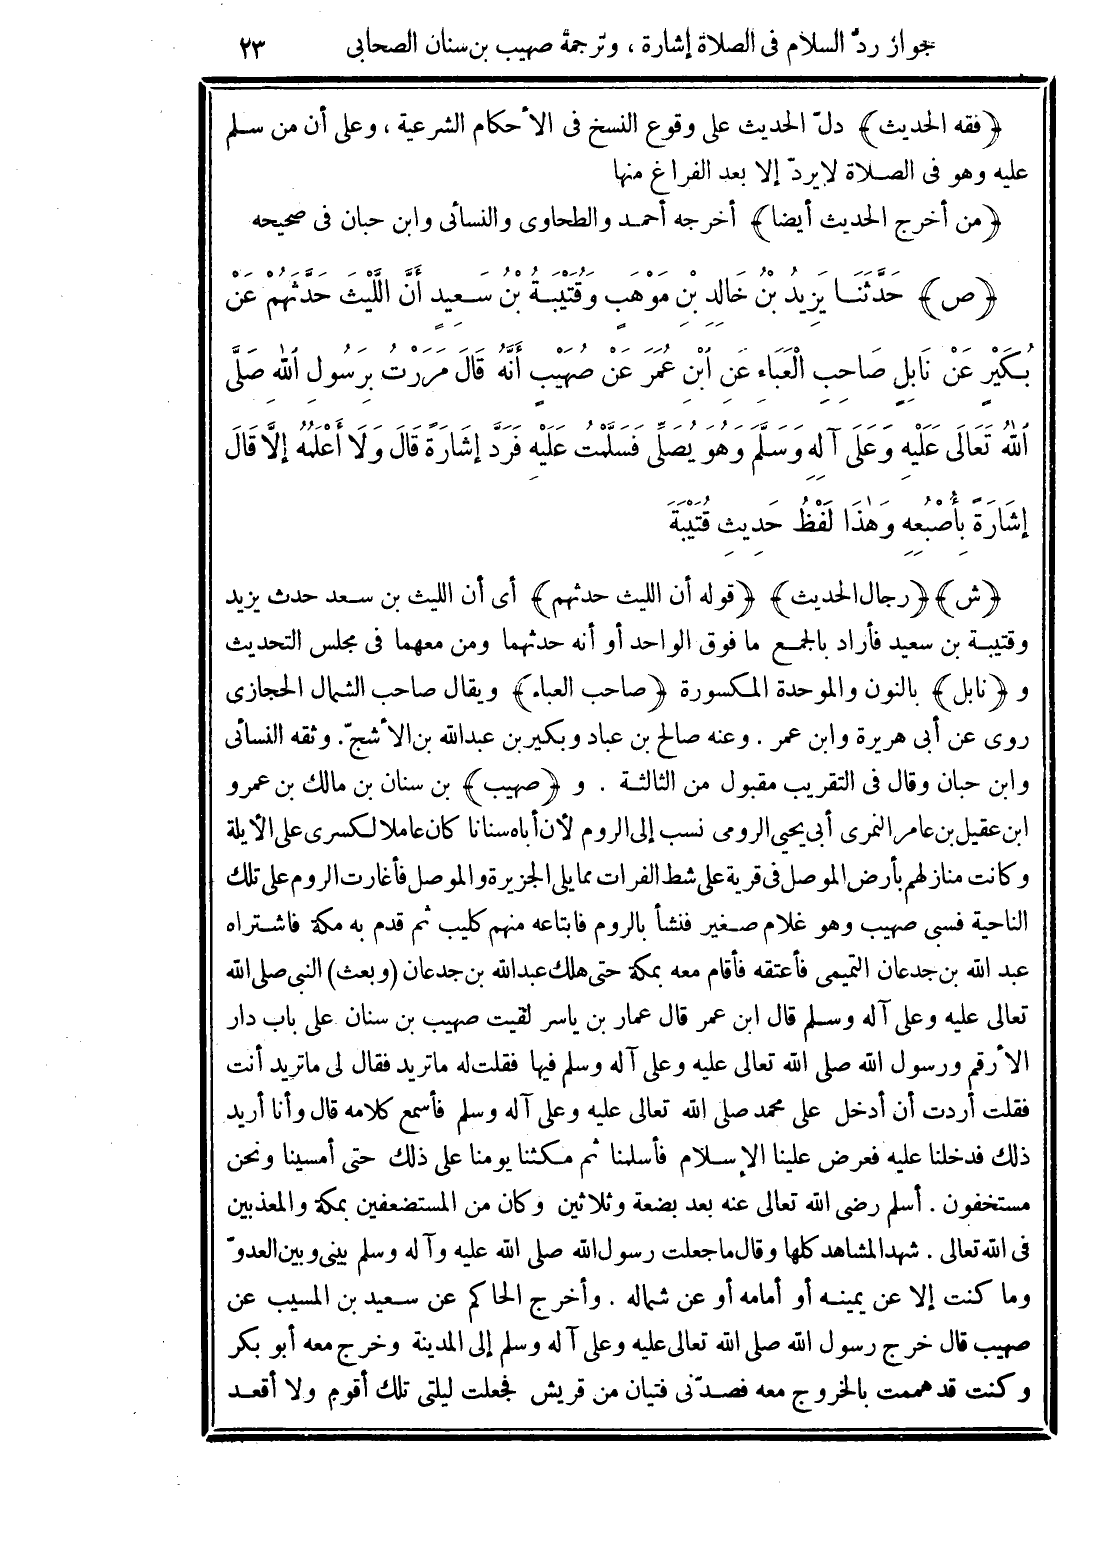 جواز ردّ السلام فى الصلاة إشارة ، وترجمة صهيب بن سنان الصحابى ٢٣
﴿فقه الحديث﴾ دلّ الحديث على وقوع النسخ فى الأحكام الشرعية ، وعلى أن من سلم
عليه وهو فى الصلاة لايردّ إلا بعد الفراغ منها
﴿من أخرج الحديث أيضا﴾ أخرجه أحمد والطحاوى والنسائى وابن حبان فى صحيحه
﴿ص﴾ حَدَّثَنَا يَزِيدُ بْنُ خَالِدِ بْنِ مَوْهَبٍ وَقُتَيْبَةُ بْنُ سَعِيدٍ أَنَّ اللَّيْثَ حَدَّثَهُمْ عَنْ
بُكَيْرٍ عَنْ نَابِلٍ صَاحِبِ الْعَبَاءِ عَنِ ابْنِ عُمَرَ عَنْ صُهَيْبٍ أَنَّهُ قَالَ مَرَرْتُ بِرَسُولِ اللهِ صَلَّى
اللهُ تَعَالَى عَلَيْهِ وَعَلَى آلِهِ وَسَلَّمَ وَهُوَ يُصَلِّى فَسَلَّمْتُ عَلَيْهِ فَرَدَّ إِشَارَةً قَالَ وَلَا أَعْلَمُهُ إِلَّا قَالَ
إِشَارَةً بِأُصْبُعِهِ وَهٰذَا لَفْظُ حَدِيثِ قُتَيْبَةَ
﴿ش﴾ ﴿رجال الحديث﴾ ﴿قوله أن الليث حدثهم﴾ أى أن الليث بن سعد حدث يزيد
وقتيبة بن سعيد فأراد بالجمع ما فوق الواحد أو أنه حدثهما ومن معهما فى مجلس التحديث
و ﴿نابل﴾ بالنون والموحدة المكسورة ﴿صاحب العباء﴾ ويقال صاحب الشمال الحجازى
روى عن أبى هريرة وابن عمر . وعنه صالح بن عباد وبكير بن عبدالله بن الأشجّ. وثقه النسائى
وابن حبان وقال فى التقريب مقبول من الثالثة . و ﴿صهيب﴾ بن سنان بن مالك بن عمرو
ابن عقيل بن عامر النمرى أبى يحيى الرومى نسب إلى الروم لأن أباه سنانا كان عاملا لكسرى على الأيلة
وكانت منازلهم بأرض الموصل فى قرية على شط الفرات مما يلى الجزيرة والموصل فأغارت الروم على تلك
الناحية فسبى صهيب وهو غلام صغير فنشأ بالروم فابتاعه منهم كليب ثم قدم به مكة فاشتراه
عبد الله بن جدعان التميمى فأعتقه فأقام معه بمكة حتى هلك عبدالله بن جدعان (وبعث) النبى صلى الله
تعالى عليه وعلى آله وسلم قال ابن عمر قال عمار بن ياسر لقيت صهيب بن سنان على باب دار
الأرقم ورسول الله صلى الله تعالى عليه وعلى آله وسلم فيها فقلت له ماتريد فقال لى ماتريد أنت
فقلت أردت أن أدخل على محمد صلى الله تعالى عليه وعلى آله وسلم فأسمع كلامه قال وأنا أريد
ذلك فدخلنا عليه فعرض علينا الإسلام فأسلمنا ثم مكثنا يومنا على ذلك حتى أمسينا ونحن
مستخفون . أسلم رضى الله تعالى عنه بعد بضعة وثلاثين وكان من المستضعفين بمكة والمعذبين
فى الله تعالى . شهد المشاهد كلها وقال ماجعلت رسول الله صلى الله عليه وآله وسلم بينى وبين العدوّ
وما كنت إلا عن يمينه أو أمامه أو عن شماله . وأخرج الحاكم عن سعيد بن المسيب عن
صهيب قال خرج رسول الله صلى الله تعالى عليه وعلى آله وسلم إلى المدينة وخرج معه أبو بكر
وكنت قد هممت بالخروج معه فصدّنى فتيان من قريش فجعلت ليلتى تلك أقوم ولا أقعد